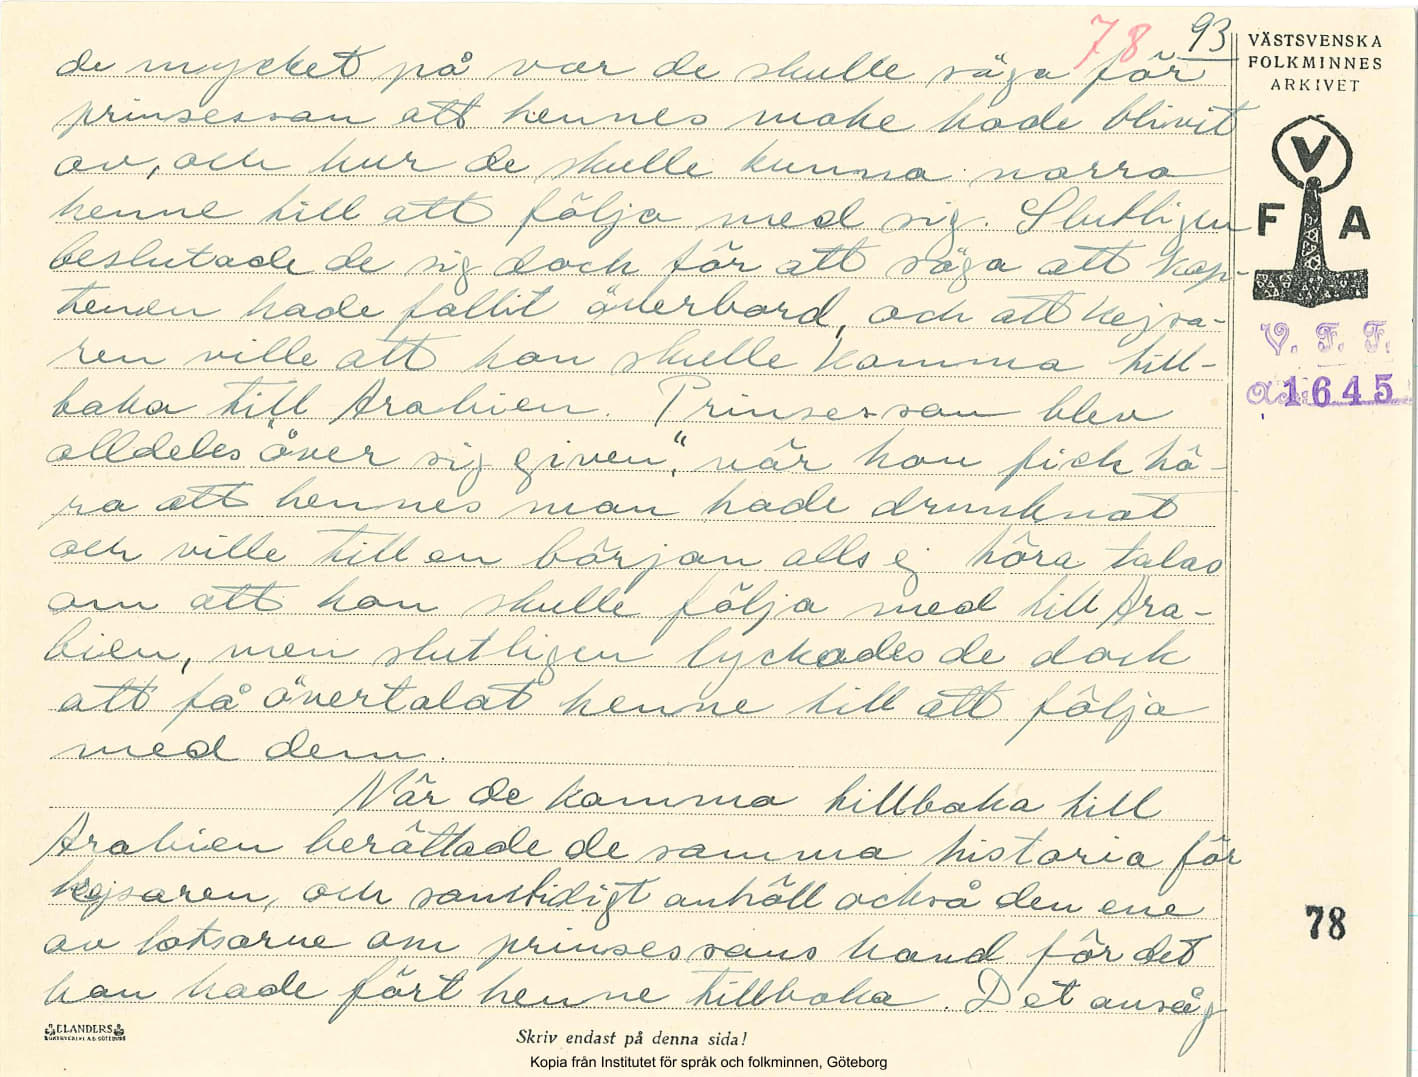 78 93
VÄSTSVENSKA
FOLKMINNES
ARKIVET
V
F A
V. F. F.
Acc: 1645
de mycket på var de skulle säga för
prinsessan att hennes make hade blivit
av, och hur de skulle kunna narra
henne till att följa med sig. Slutligen
beslutade de sig dock för att säga att kap-
tenen hade fallit överbord, och att kejsa-
ren ville att hon skulle komma till-
baka till Arabien. Prinsessan blev
alldeles "över sig given", när hon fick hö-
ra att hennes man hade drunknat
och ville till en början alls ej höra talas
om att hon skulle följa med till Ara-
bien, men slutligen lyckades de dock
att få övertalat henne till att följa
med dem.
När de komma tillbaka till
Arabien berättade de samma historia för
kejsaren, och samtidigt anhöll också den ene
av lotsarne om prinsessans hand för det
han hade fört henne tillbaka. Det ansåg
78
ELANDERS
BOKTRYCKERI A.B. GÖTEBORG
Skriv endast på denna sida!
Kopia från Institutet för språk och folkminnen, Göteborg